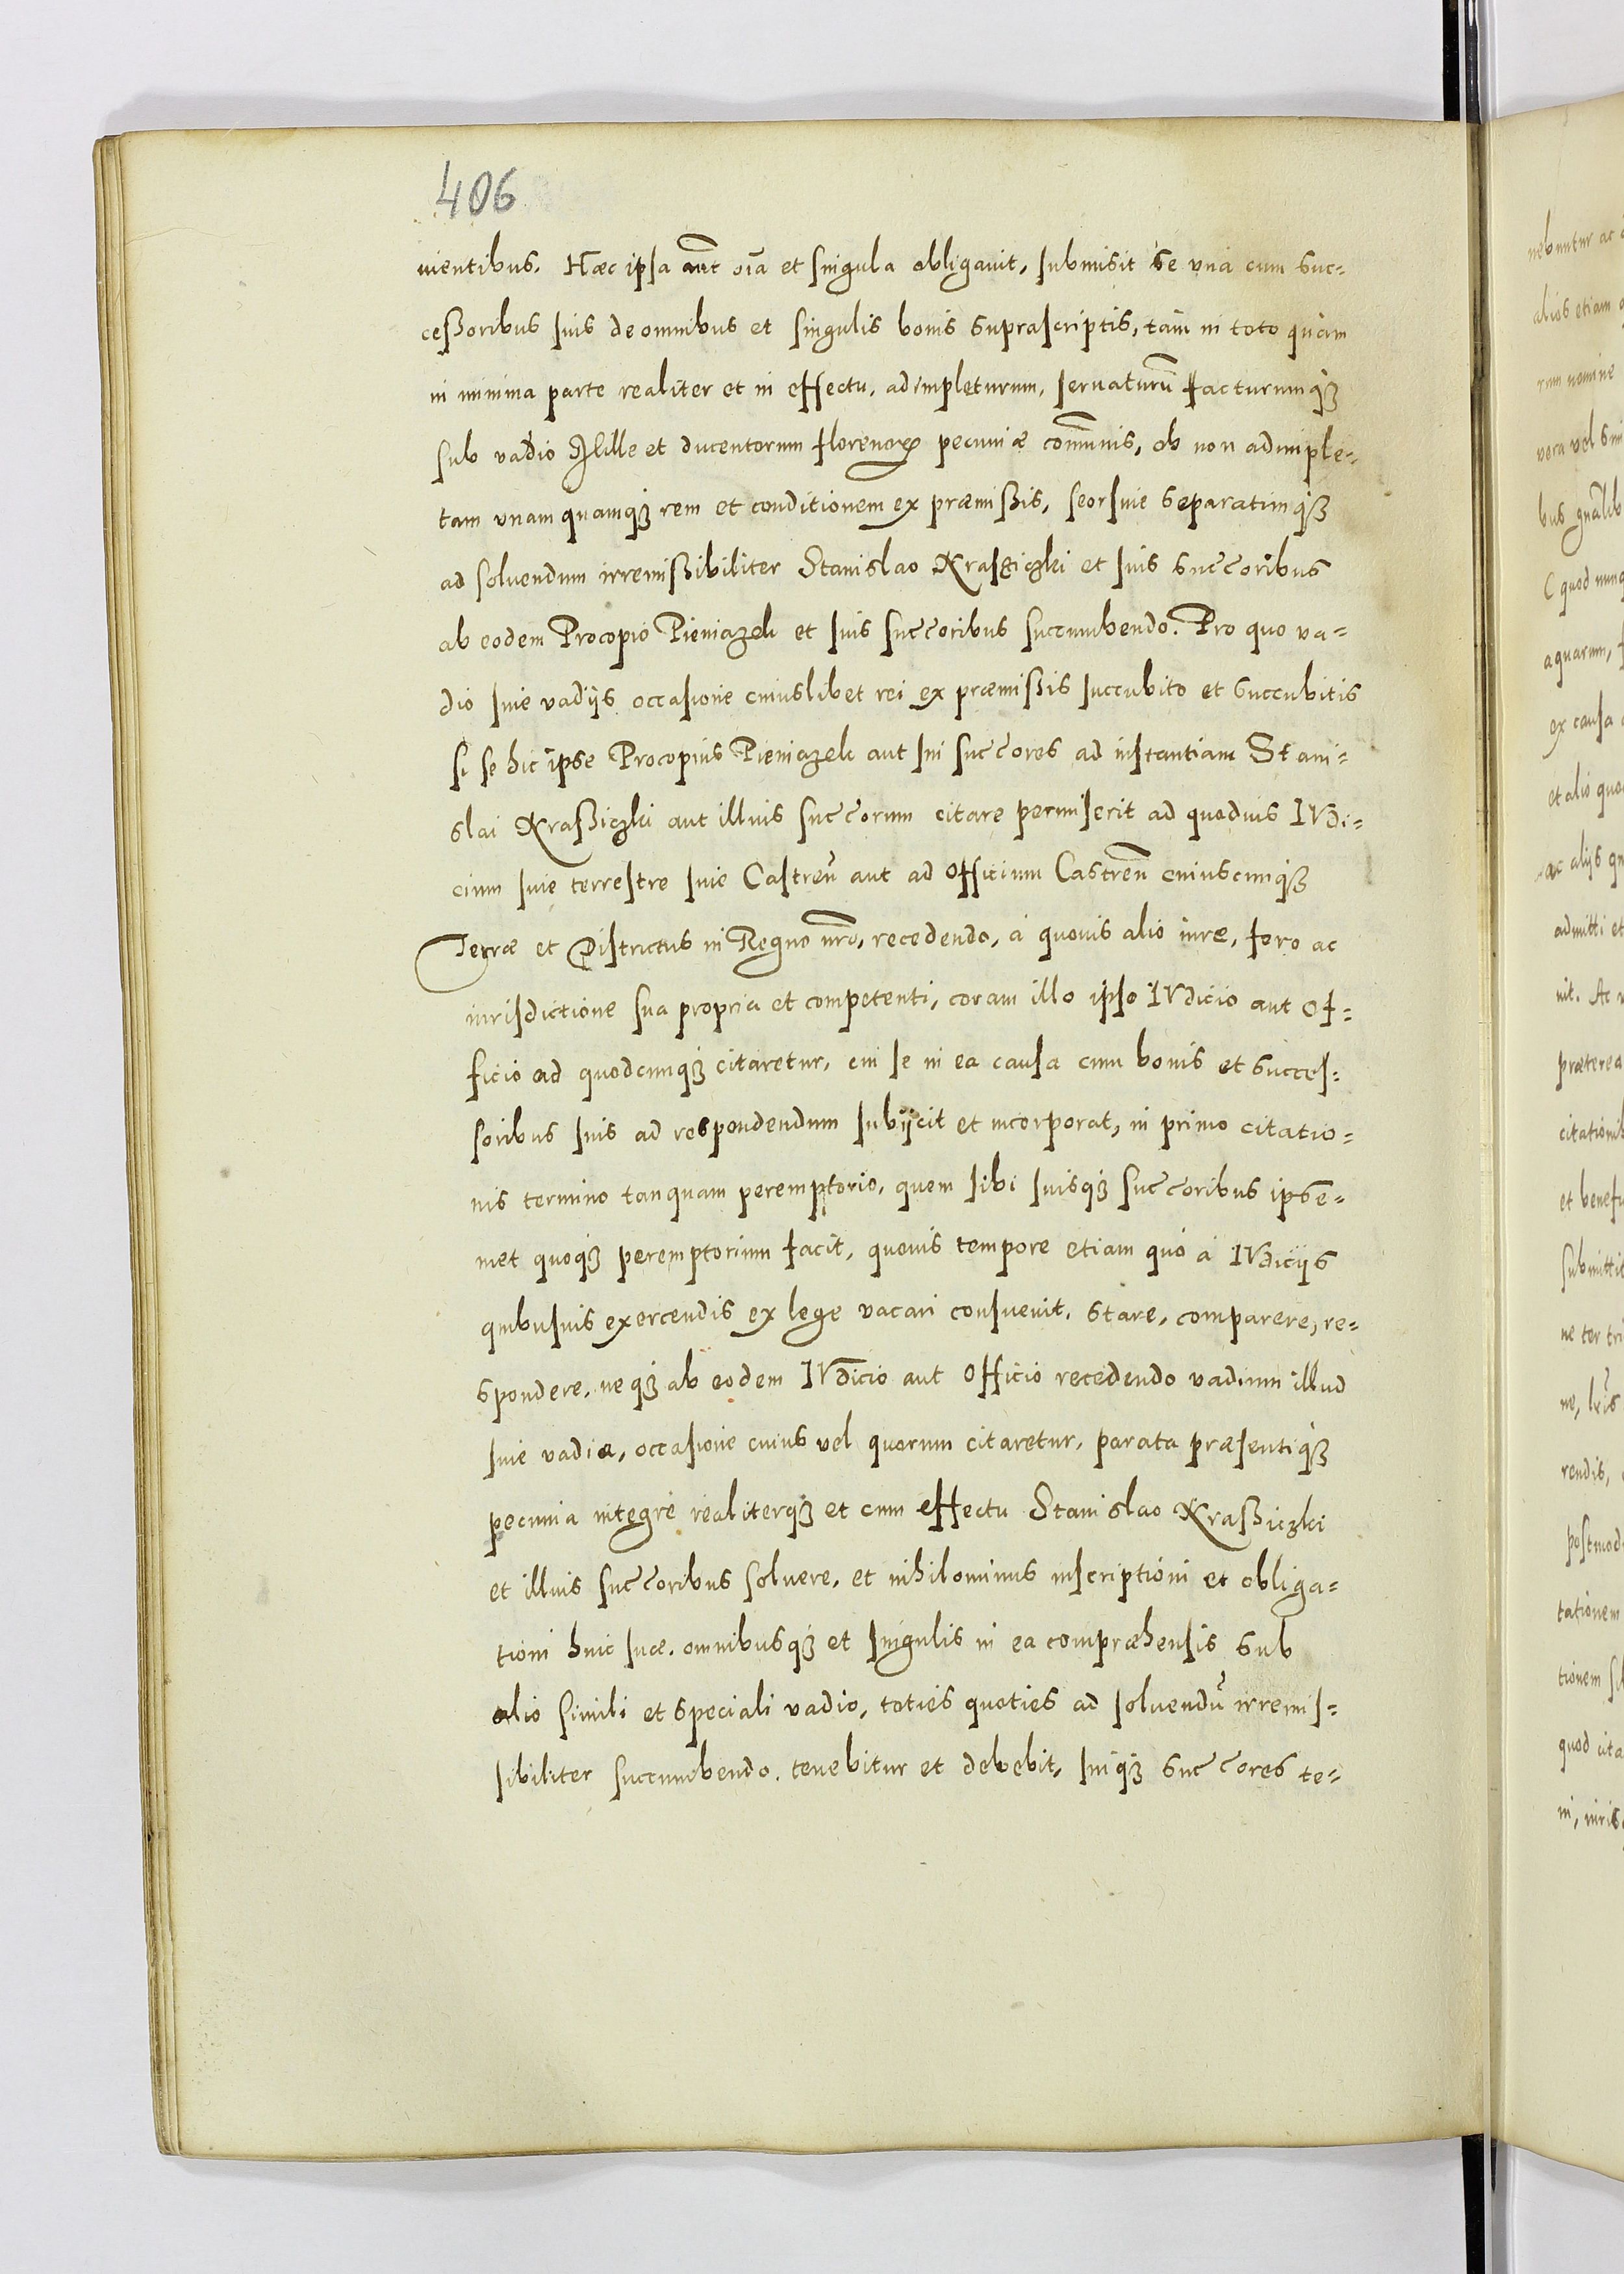 406
uientibus. Hæc ipsa aut̃ oĩa et singula obligauit, submisit se vna cum suc-
cessoribus suis de omnibus et singulis bonis suprascriptis, tàm in toto quàm
in minima parte realiter et in effectu, adimpleturum, seruaturũ facturumq́
sub vadio Mille et ducentorum florenoꝝ pecuniæ com̃unis, ob non adimple-
tam vnamquamq́ rem et conditionem ex præmissis, seorsiue separatimq́
ad soluendum irremissibiliter Stanislao Krassiczki et suis succoribus
ab eodem Procopio Pieniazek et suis succoribus succumbendo. Pro quo va-
dio siue vadijs occasione cuiuslibet rei ex præmissis succubito et succubitis
si se hic ipse Procopius Pieniazek aut sui succores ad instantiam Stani-
slai Krassiczki aut illius succorum citare permiserit ad quoduis IVdi-
cium siue terrestre siue Castreñ aut ad Officium Castreñ cuiuscumq́
Terræ et Districtus in Regno nr̃o, recedendo, à quouis alio iure, foro ac
iurisdictione sua propria et competenti, coram illo ipso IVdicio aut Of-
ficio ad quodcumq́ citaretur, cui se in ea causa cum bonis et succes-
soribus suis ad respondendum subijcit et incorporat, in primo citatio-
nis termino tanquam peremptorio, quem sibi suisq́ succoribus ipse-
met quoq́ peremptorium facit, quouis tempore etiam quò à IVdicijs
quibusuis exercendis ex lege vacari consueuit, stare, comparere, re-
spondere, neq́ ab eodem IVdicio aut Officio recedendo vadium illud
siue vadia, occasione cuius vel quorum citaretur, parata præsentiq́
pecunia integrè realiterq́ et cum effectu Stanislao Krassiczki
et illius succoribus soluere, et nihilominus inscriptioni et obliga-
tioni huic suæ, omnibusq́ et singulis in ea compræhensis sub
alio simili et speciali vadio, toties quoties ad soluendũ irremis-
sibiliter succumbendo, tenebitur et debebit, suiq́ succores te-